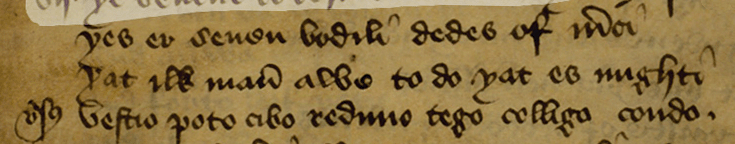 yes er seuen bodili dedes of mci
yat ilk man awe to do yat es mighti
vsus Vestio poto cibo redimo tego colligo condo.